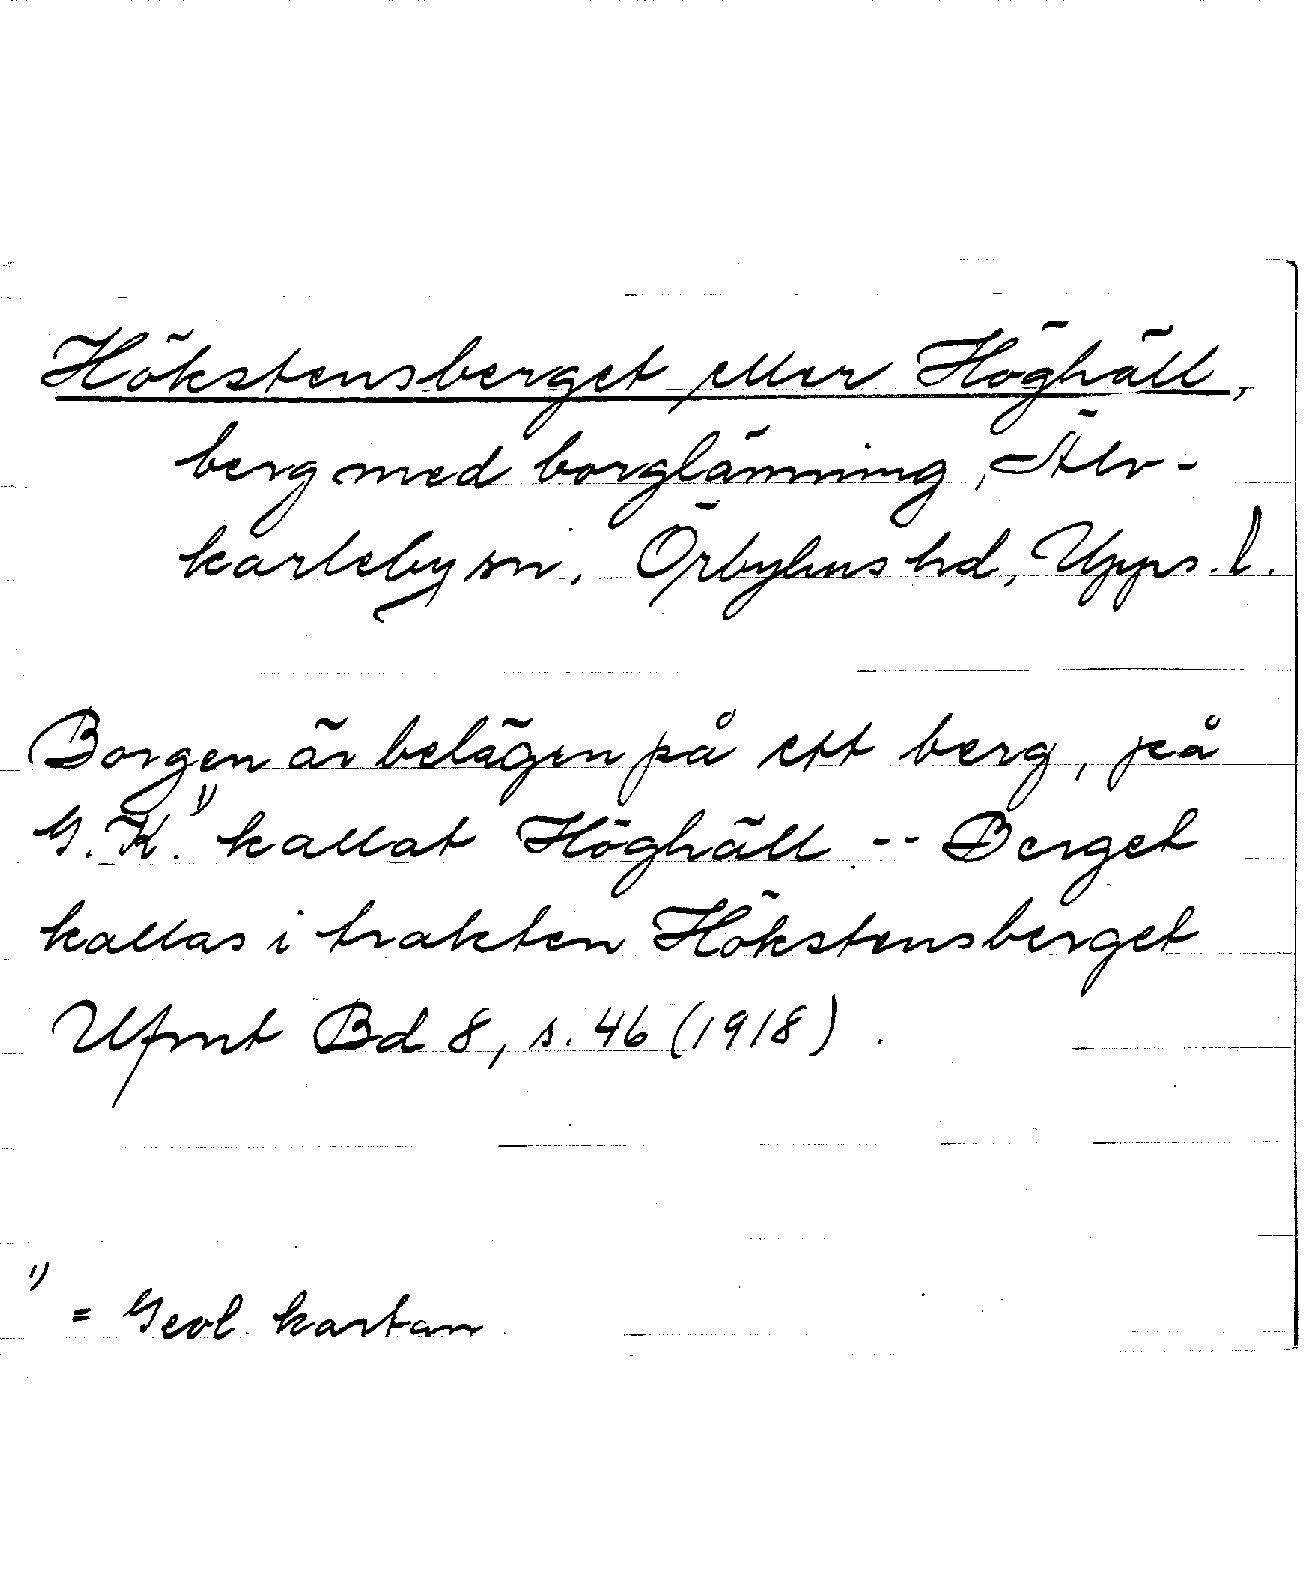 Hökstensberget eller Höghäll,
berg med borglämning, Älv-
karleby sn, Örbyhus hd, Upps. l.
Borgen är belägen på ett berg, på
G. K.¹⁾ kallat Höghäll -- Berget
kallas i trakten Hökstensberget
Ufmt Bd 8, s. 46 (1918).
¹⁾ = Geol. kartan